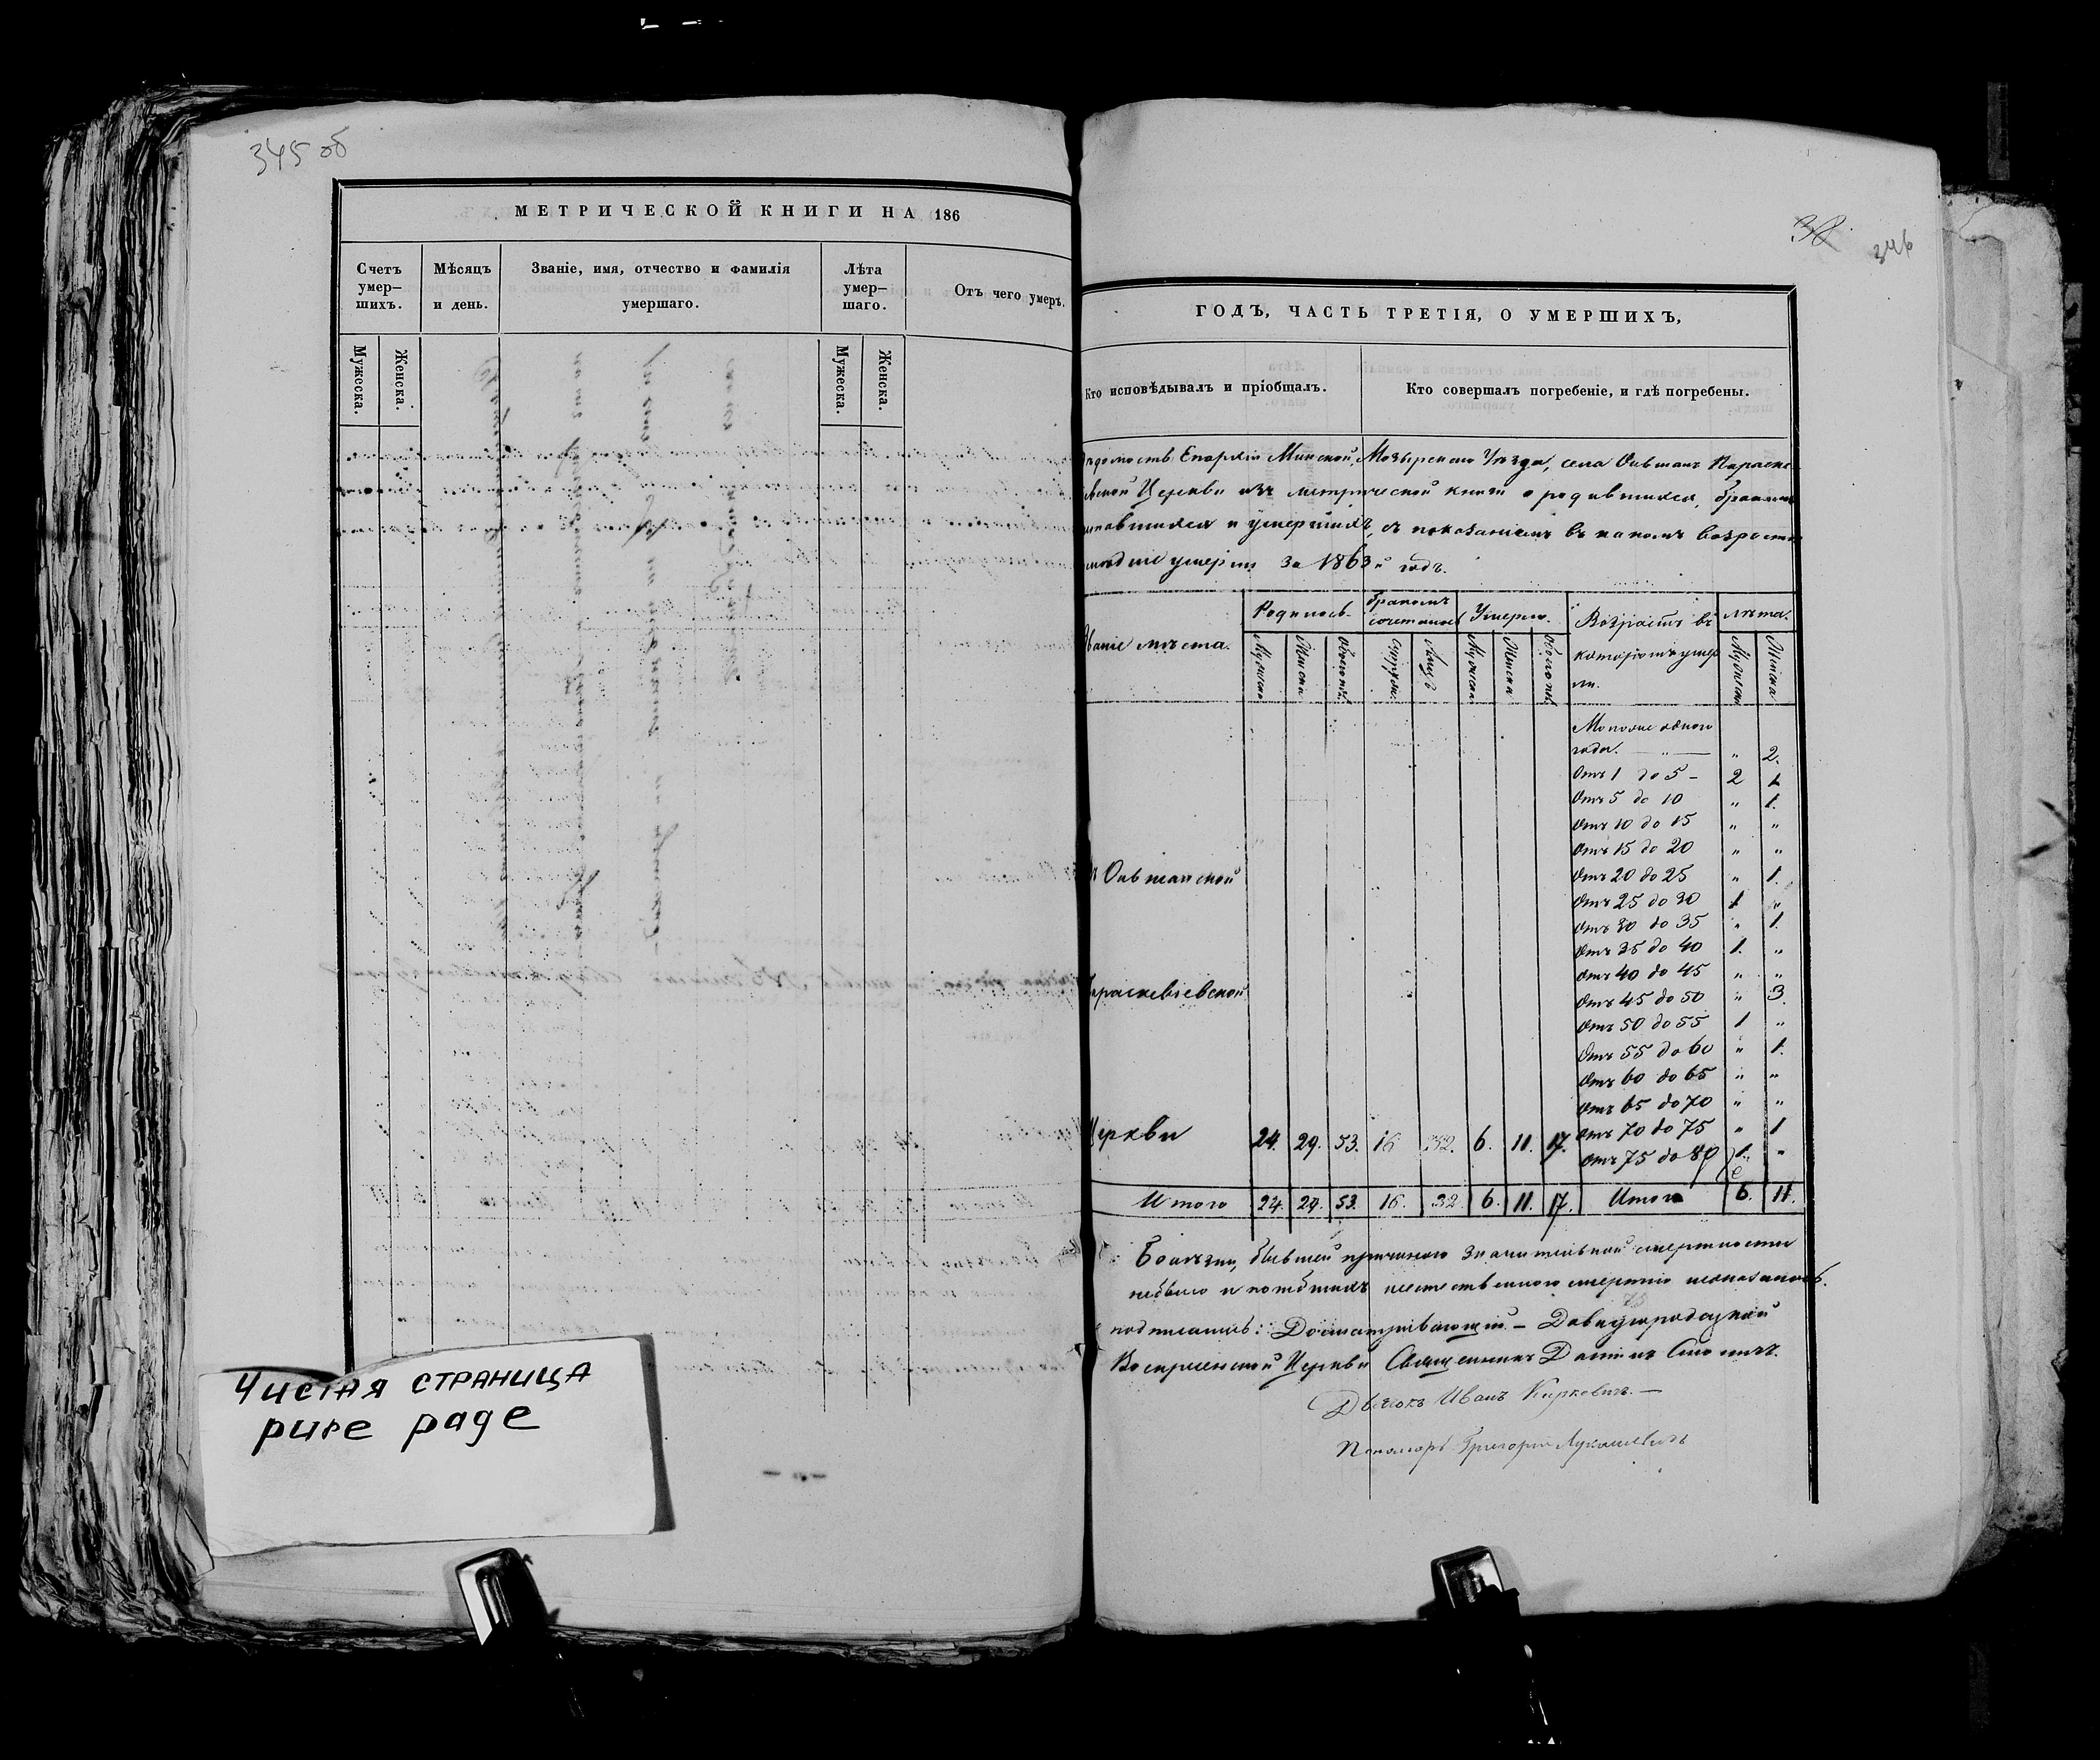 345 об
МЕТРИЧЕСКОЙ КНИГИ НА 186
Счетъ умер— шихъ.
Мѣсяцъ и день.
Званіе, имя, отчество и фамилія умершаго.
Лѣта умер— шаго.
Отъ чего умеръ.
Мужеска.
Женска.
Мужеска.
Женска.
Чистая страница
pure page
38
346
ГОДЪ, ЧАСТЬ ТРЕТІЯ, О УМЕРШИХЪ,
Кто исповѣдывалъ и пріобщалъ.
Кто совершалъ погребеніе, и гдѣ погребены.
Епархіи Минской, Мозырскаго Уѣзда, села
Церкви изъ метрической книги о родившихся,
и умершихъ, съ показаніемъ въ какомъ возрастѣ
умерли за 1863й годъ.
мѣста.
Родилось
бракомъ
Умерло.
Возрастъ въ
лѣта.
Моложе одного
года. „ 2.
Отъ 1 до 5 – 2 1
Отъ 5 до 10 „ 1.
Отъ 10 до 15 „ „
Отъ 15 до 20 „ „
Отъ 20 до 25 „ 1.
Отъ 25 до 30 1 „
Отъ 30 до 35 „ 1.
Отъ 35 до 40 1. „
Отъ 40 до 45 „ „
Отъ 45 до 50 „ 3.
Отъ 50 до 55 1 „
Отъ 55 до 60 „ 1.
Отъ 60 до 65 „ „
Отъ 65 до 70 „ „
Церкви 24. 29. 53. 16 32. 6. 11. 17. Отъ 70 до 75 „ 1
Отъ 75 до 80 1. „
Итого 24. 29. 53. 16. 32. 6. 11. 17. Итого 6. 11.
Болѣзни, бывшей причиною значительной смертности
небыло и
: – Давидгородоцкой
Воскресенской Церкви Священникъ
Дьячокъ Иванъ
Пономарь Григорій Лукашевичъ